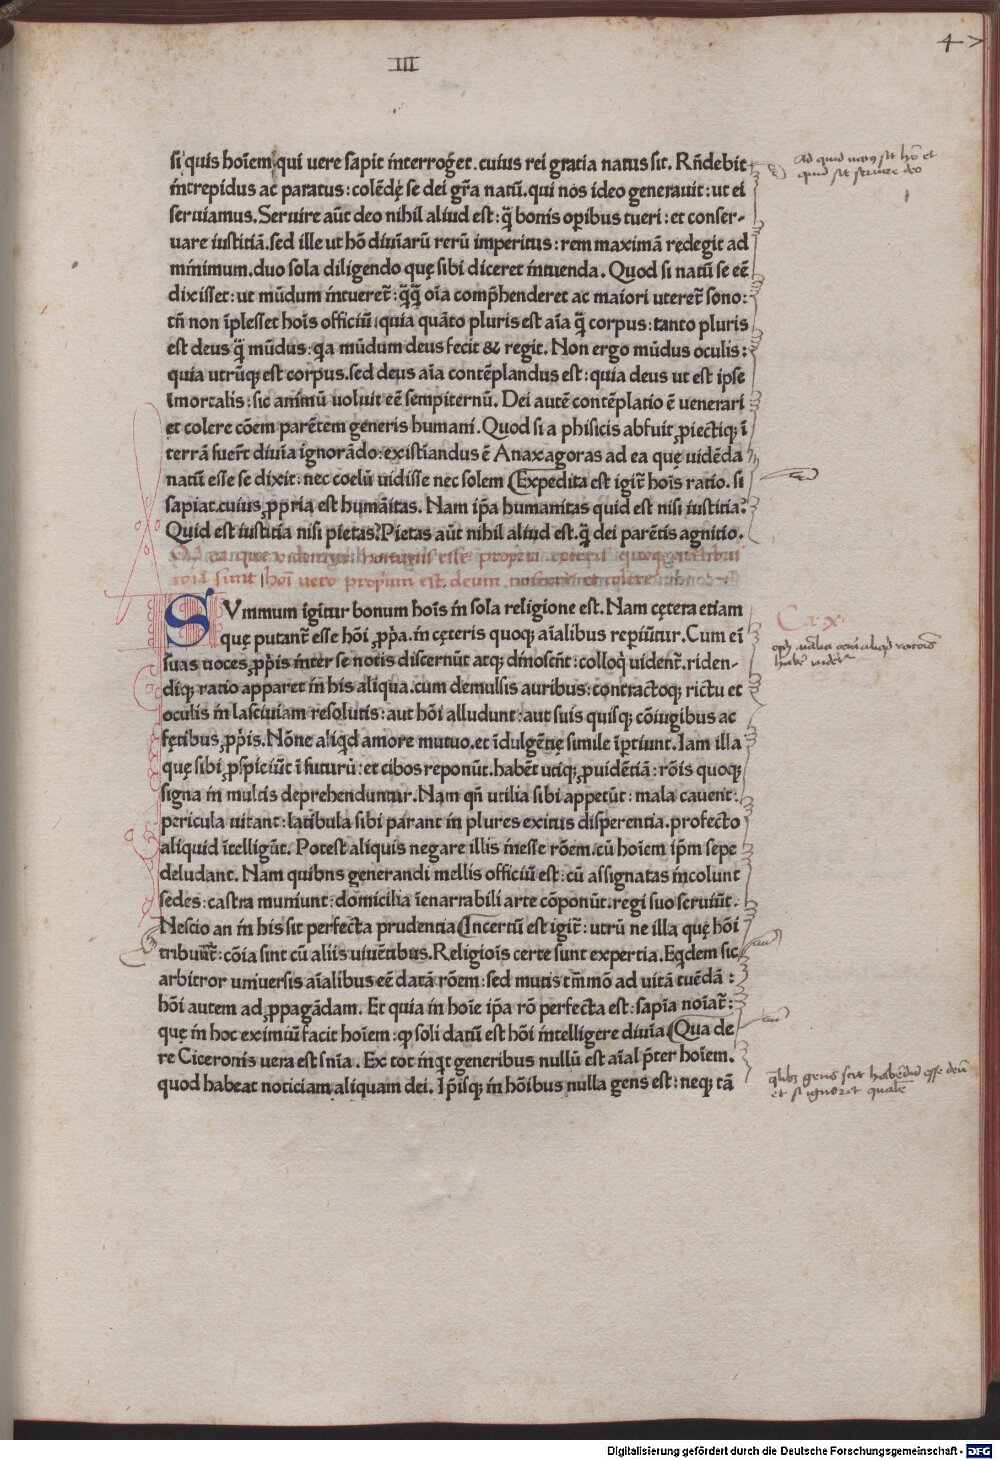 III
47
si quis hoı̄em qui uere sapit interroget. cuius rei gratia natus sit. Rn̄debit
intrepidus ac paratus: colēdę se dei gr̄a natū. qui nos ideo generauit: ut ei
seruiamus. Seruire aūt deo nihil aliud est: q̄ bonis oꝑibus tueri: et conser-
uare iustitiā. sed ille ut hō diuinarū rerū imperitus: rem maximā redegit ad
minimum. duo sola diligendo quę sibi diceret intuenda. Quod si natū se eē
dixisset: ut mūdum intueret̄: q̄q̄ oı̄a comp̄henderet ac maiori uteret̄ sono:
tn̄ non īplesset hoı̄s officiū: quia quāto pluris est aı̄a q̄ corpus: tanto pluris
est deus q̄ mūdus: qa mūdum deus fecit & regit. Non ergo mūdus oculis:
quia utrūqꝫ est corpus. sed deus aı̄a contēplandus est: quia deus ut est ipse
īmortalis: sic animū uoluit eē sempiternū. Dei autē contēplatio ē uenerari
et colere cōem parētem generis humani. Quod si a phisicis abfuit ꝓiectiqꝫ ī
terrā fuer̄t diuı̄a ignorādo: existı̄andus ē Anaxagoras ad ea quę uidēda
natū esse se dixit: nec coelū uidisse nec solem Expedita est igit̄ hoı̄s ratio. si
sapiat. cuius ꝓpria est humāitas. Nam ip̄a humanitas quid est nisi iustitia?
Quid est iustitia nisi pietas? Pietas aūt nihil aliud est. q̄ dei parētis agnitio.
sunt hoī uero propriū est deum
SVmmum igitur bonum hoı̄s in sola religione est. Nam cętera etiam
quę putant̄ esse hōi ꝓp̄a. in cęteris quoqꝫ aı̄alibus reperiūtur. Cum eı̄
suas uoces ꝓp̄is inter se notis discernūt atqꝫ dinoscūt: colloq̄ uident̄. riden-
diqꝫ ratio apparet in his aliqua. cum demulsis auribus: contractoqꝫ rictu et
oculis in lasciuiam resolutis: aut hōi alludunt: aut suis quisqꝫ cōiugibus ac
fętibus ꝓp̄is. Nōne aliqd amore mutuo. et īdulgētię simile īpertiunt. Iam illa
quę sibi ꝓspiciūt ī futurū: et cibos reponūt. habēt utiqꝫ ꝓuidētiā: rōis quoqꝫ
signa in multis deprehenduntur. Nam qn̄ utilia sibi appetūt: mala cauent:
pericula uitant: latibula sibi parant in plures exitus disperentia. profecto
aliquid ītelligūt. Potest aliquis negare illis inesse rōem. cū hoı̄em ip̄m sepe
deludant. Nam quibns generandi mellis officiū est: cū assignatas incolunt
sedes: castra muniunt: domicilia īenarrabili arte cōponūt. regi suo seruiūt.
Nescio an in his sit perfecta prudentia Incertū est igit̄: utrū ne illa quę hōi
tribuūt̄: cōia sint cū aliis uiuētibus. Religiois certe sunt expertia. Eqdem sic
arbitror uniuersis aı̄alibus eē datā rōem: sed mutis tm̄mō ad uitā tuēdā:
hōi autem ad ꝓpagādam. Et quia in hoı̄e ip̄a rō perfecta est: sapı̄a noı̄at̄:
quę in hoc eximiū facit hoı̄em: ꝙ soli datū est hōi intelligere diuı̄a Qua de
re Ciceronis uera est sn̄ia. Ex tot inqt generibus nullū est aı̄al p̄ter hoı̄em.
quod habeat noticiam aliquam dei. Ip̄isqꝫ in hōibus nulla gens est: neqꝫ tā
Ad quid natus sit hō et
quid sit seruire deo
Ca. x.
habere
gens scit habēdū esse deū
et si ignoret qualē
Digitalisierung gefördert durch die Deutsche Forschungsgemeinschaft - DFG